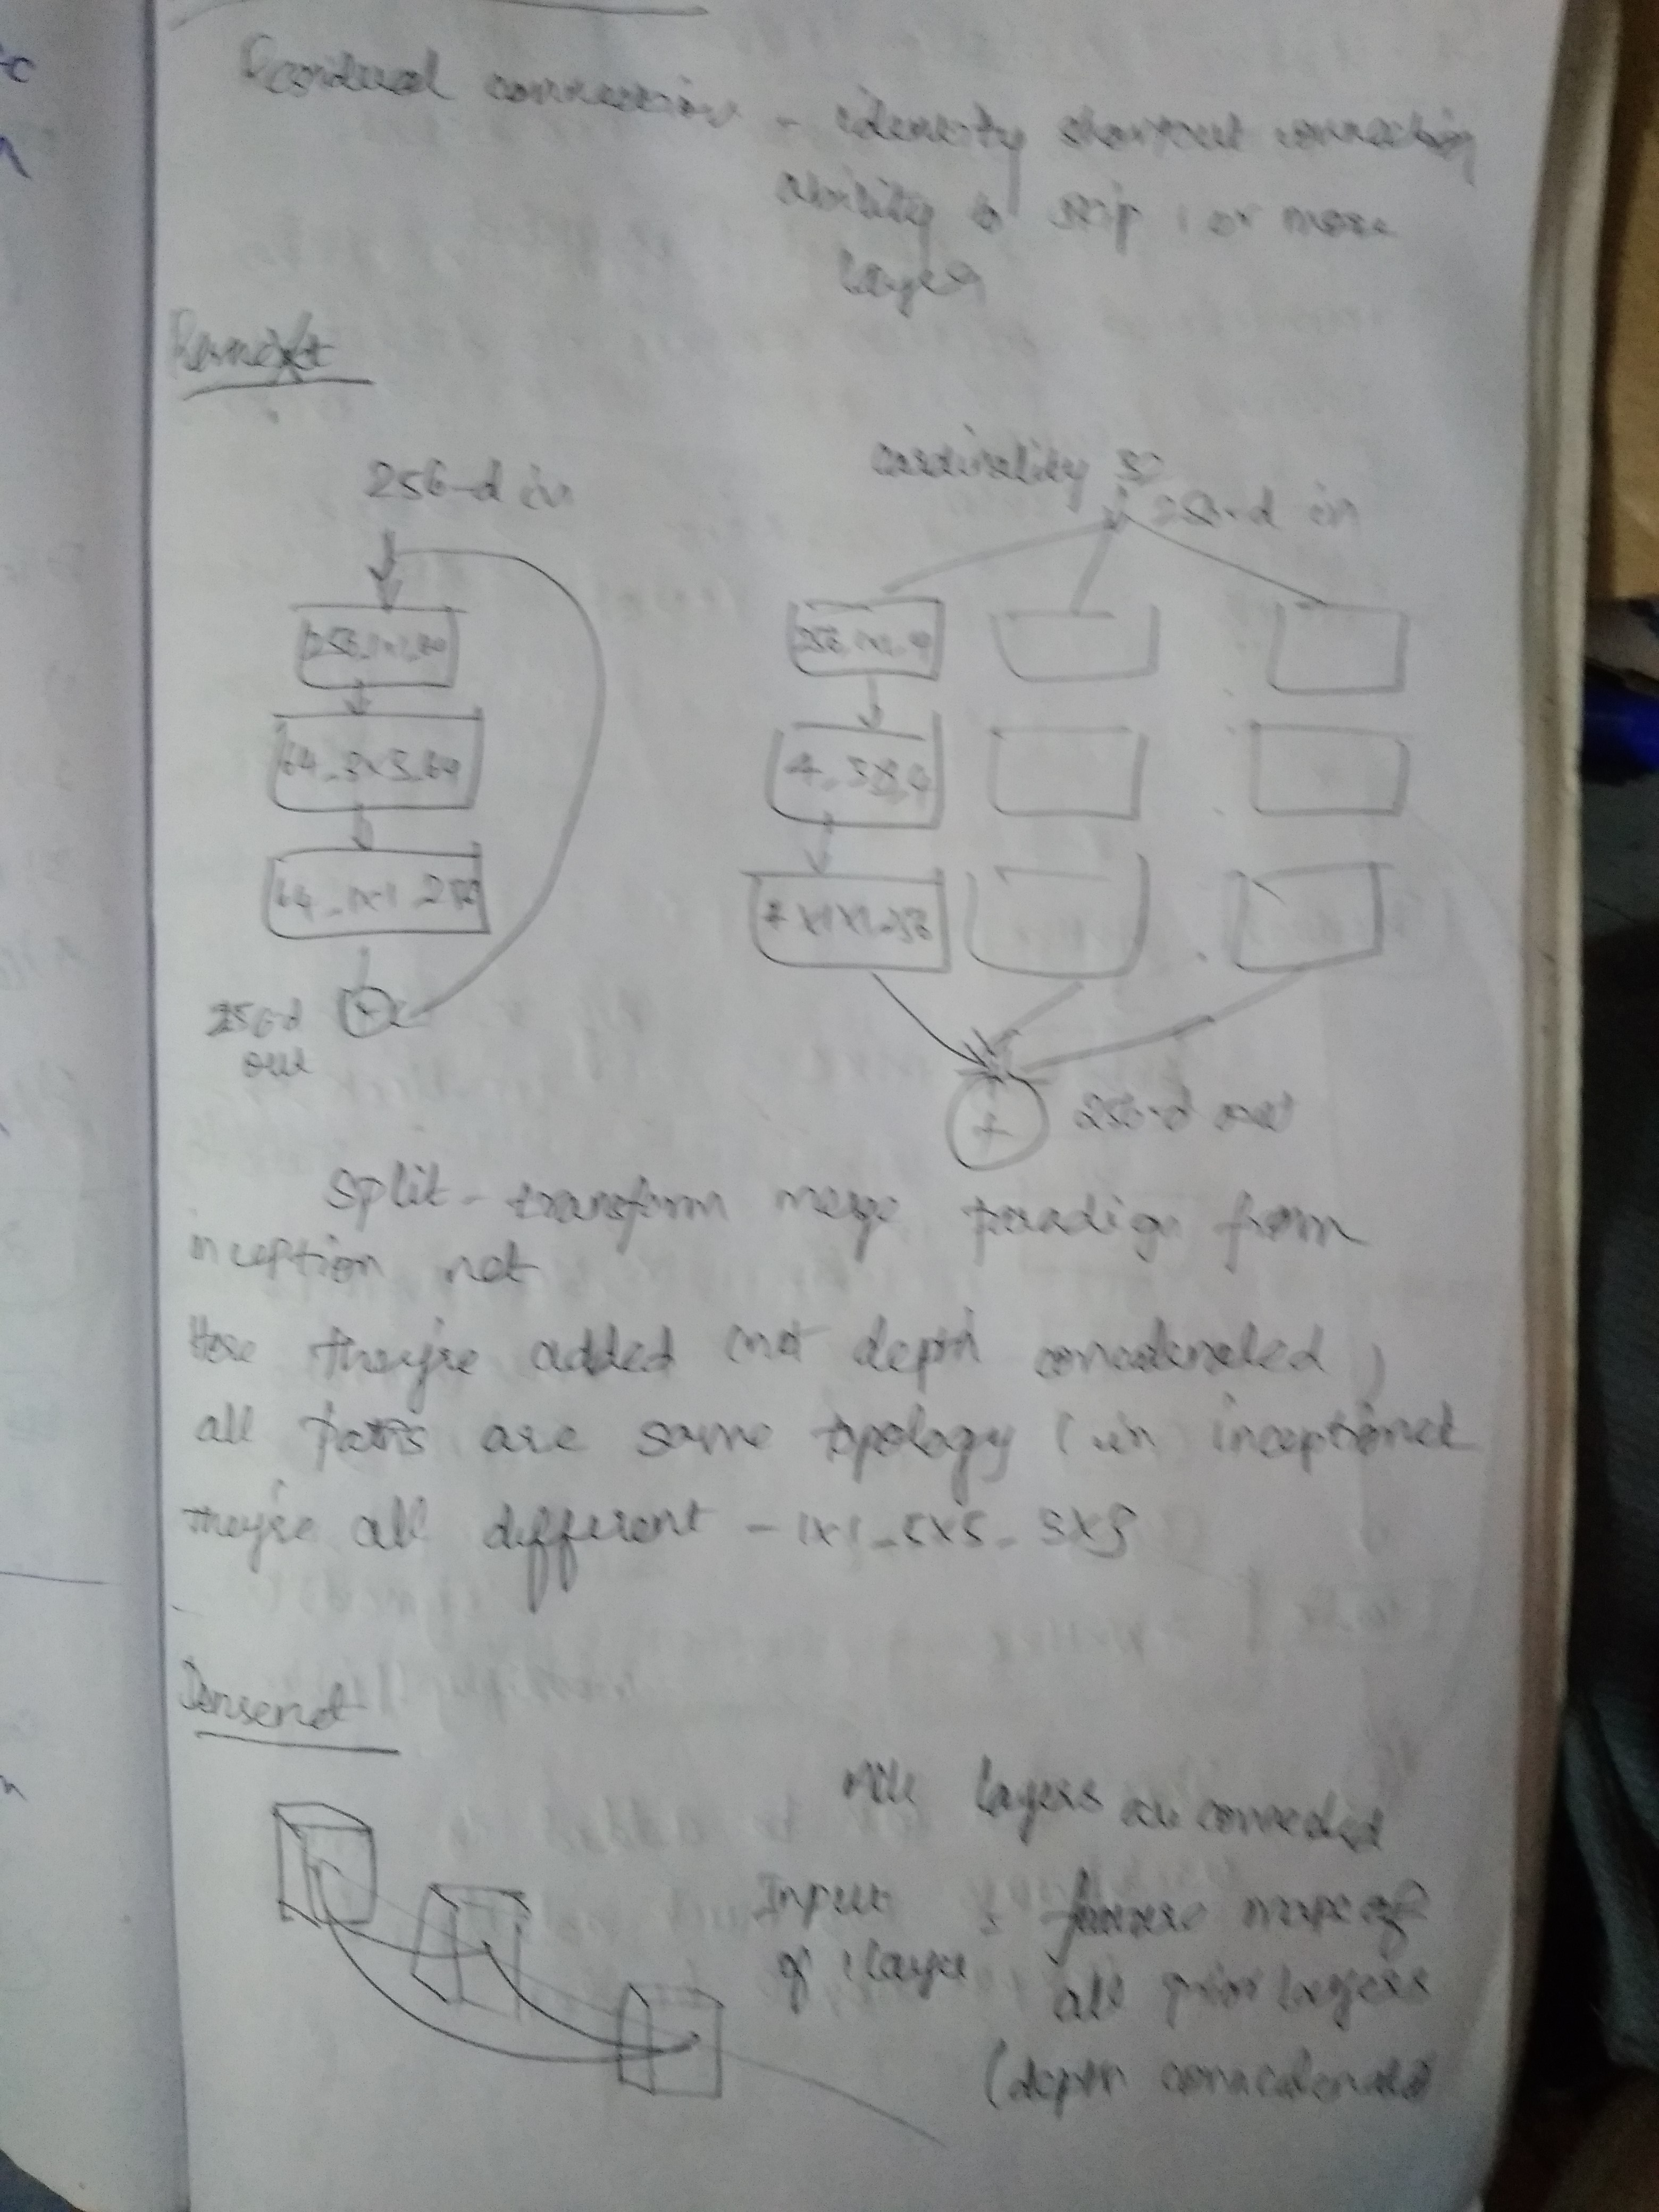 Residual connection - identity shortcut connection
ability to skip 1 or more
layer
Resnext
256-d in
256_1x1_64
64_3x3_64
64_1x1_256
256-d
out
cardinality 32
256-d in
256_1x1_4
4_3x3_4
4x1x1_256
+
256-d out
Split-transform merge paradigm from
inception net
Here they're added (not depth concatenated)
all paths are same topology (in inceptionet
they're all different - 1x1_5x5_3x3
Densenet
All layers are connected
Input
of 1 layer
: feature maps of
all prior layers
(depth concatenated